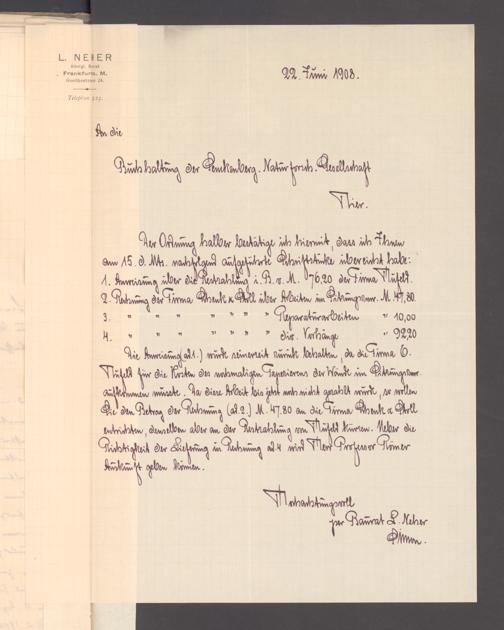 L. NEHER
Königl. Baurat
Frankfurt a. M.
Goethestrasse 24.
Telephon 525.
22. Juni 1908.
An die
Buchhaltung der Senckenberg. Naturforsch. Gesellschaft
Hier.
Der Ordnung halber bestätige ich hiermit, dass ich Ihnen
am 15. d. Mts. nachfolgend aufgeführte Schriftstücke überreicht habe:
1. Anweisung über die Restzahlung i. B. v. M. 76,20 der Firma Hüfeld.
2. Rechnung der Firma Schenk & Scholl über Arbeiten im Sitzungszimm. M. 47.80.
3. " " " " " " " Reparaturarbeiten " 10,00
4. " " " " " " " div. Vorhänge " 92,20
Die Anweisung (a.1.) wird seinerzeit zurück behalten, da die Firma G.
Hüfeld für die Kosten des nochmaligen Tapezierens der Wände im Sitzungszimm.
aufkommen müsste. Da diese Arbeit bis jetzt noch nicht gezahlt wurde, so wollen
Sie den Betrag der Rechnung (a.2.) M. 47.80 an die Firma Schenk & Scholl
entrichten, denselben aber an der Restzahlung von Hüfeld kürzen. Ueber die
Richtigkeit der Lieferung in Rechnung a.4 wird Herr Professor Römer
Auskunft geben können.
Hochachtungsvoll
per Baurat L. Neher